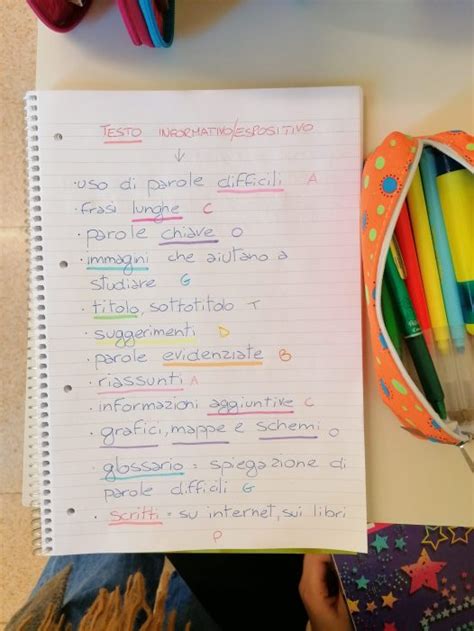 TESTO INFORMATIVO/ESPOSITIVO
↓
· uso di parole difficili A
· frasi lunghe C
· parole chiave O
· immagini che aiutano a
studiare G
· titolo, sottotitolo T
· suggerimenti D
· parole evidenziate B
· riassunti A
· informazioni aggiuntive C
· grafici, mappe e schemi O
· glossario = spiegazione di
parole difficili G
· scritti = su internet, sui libri
P